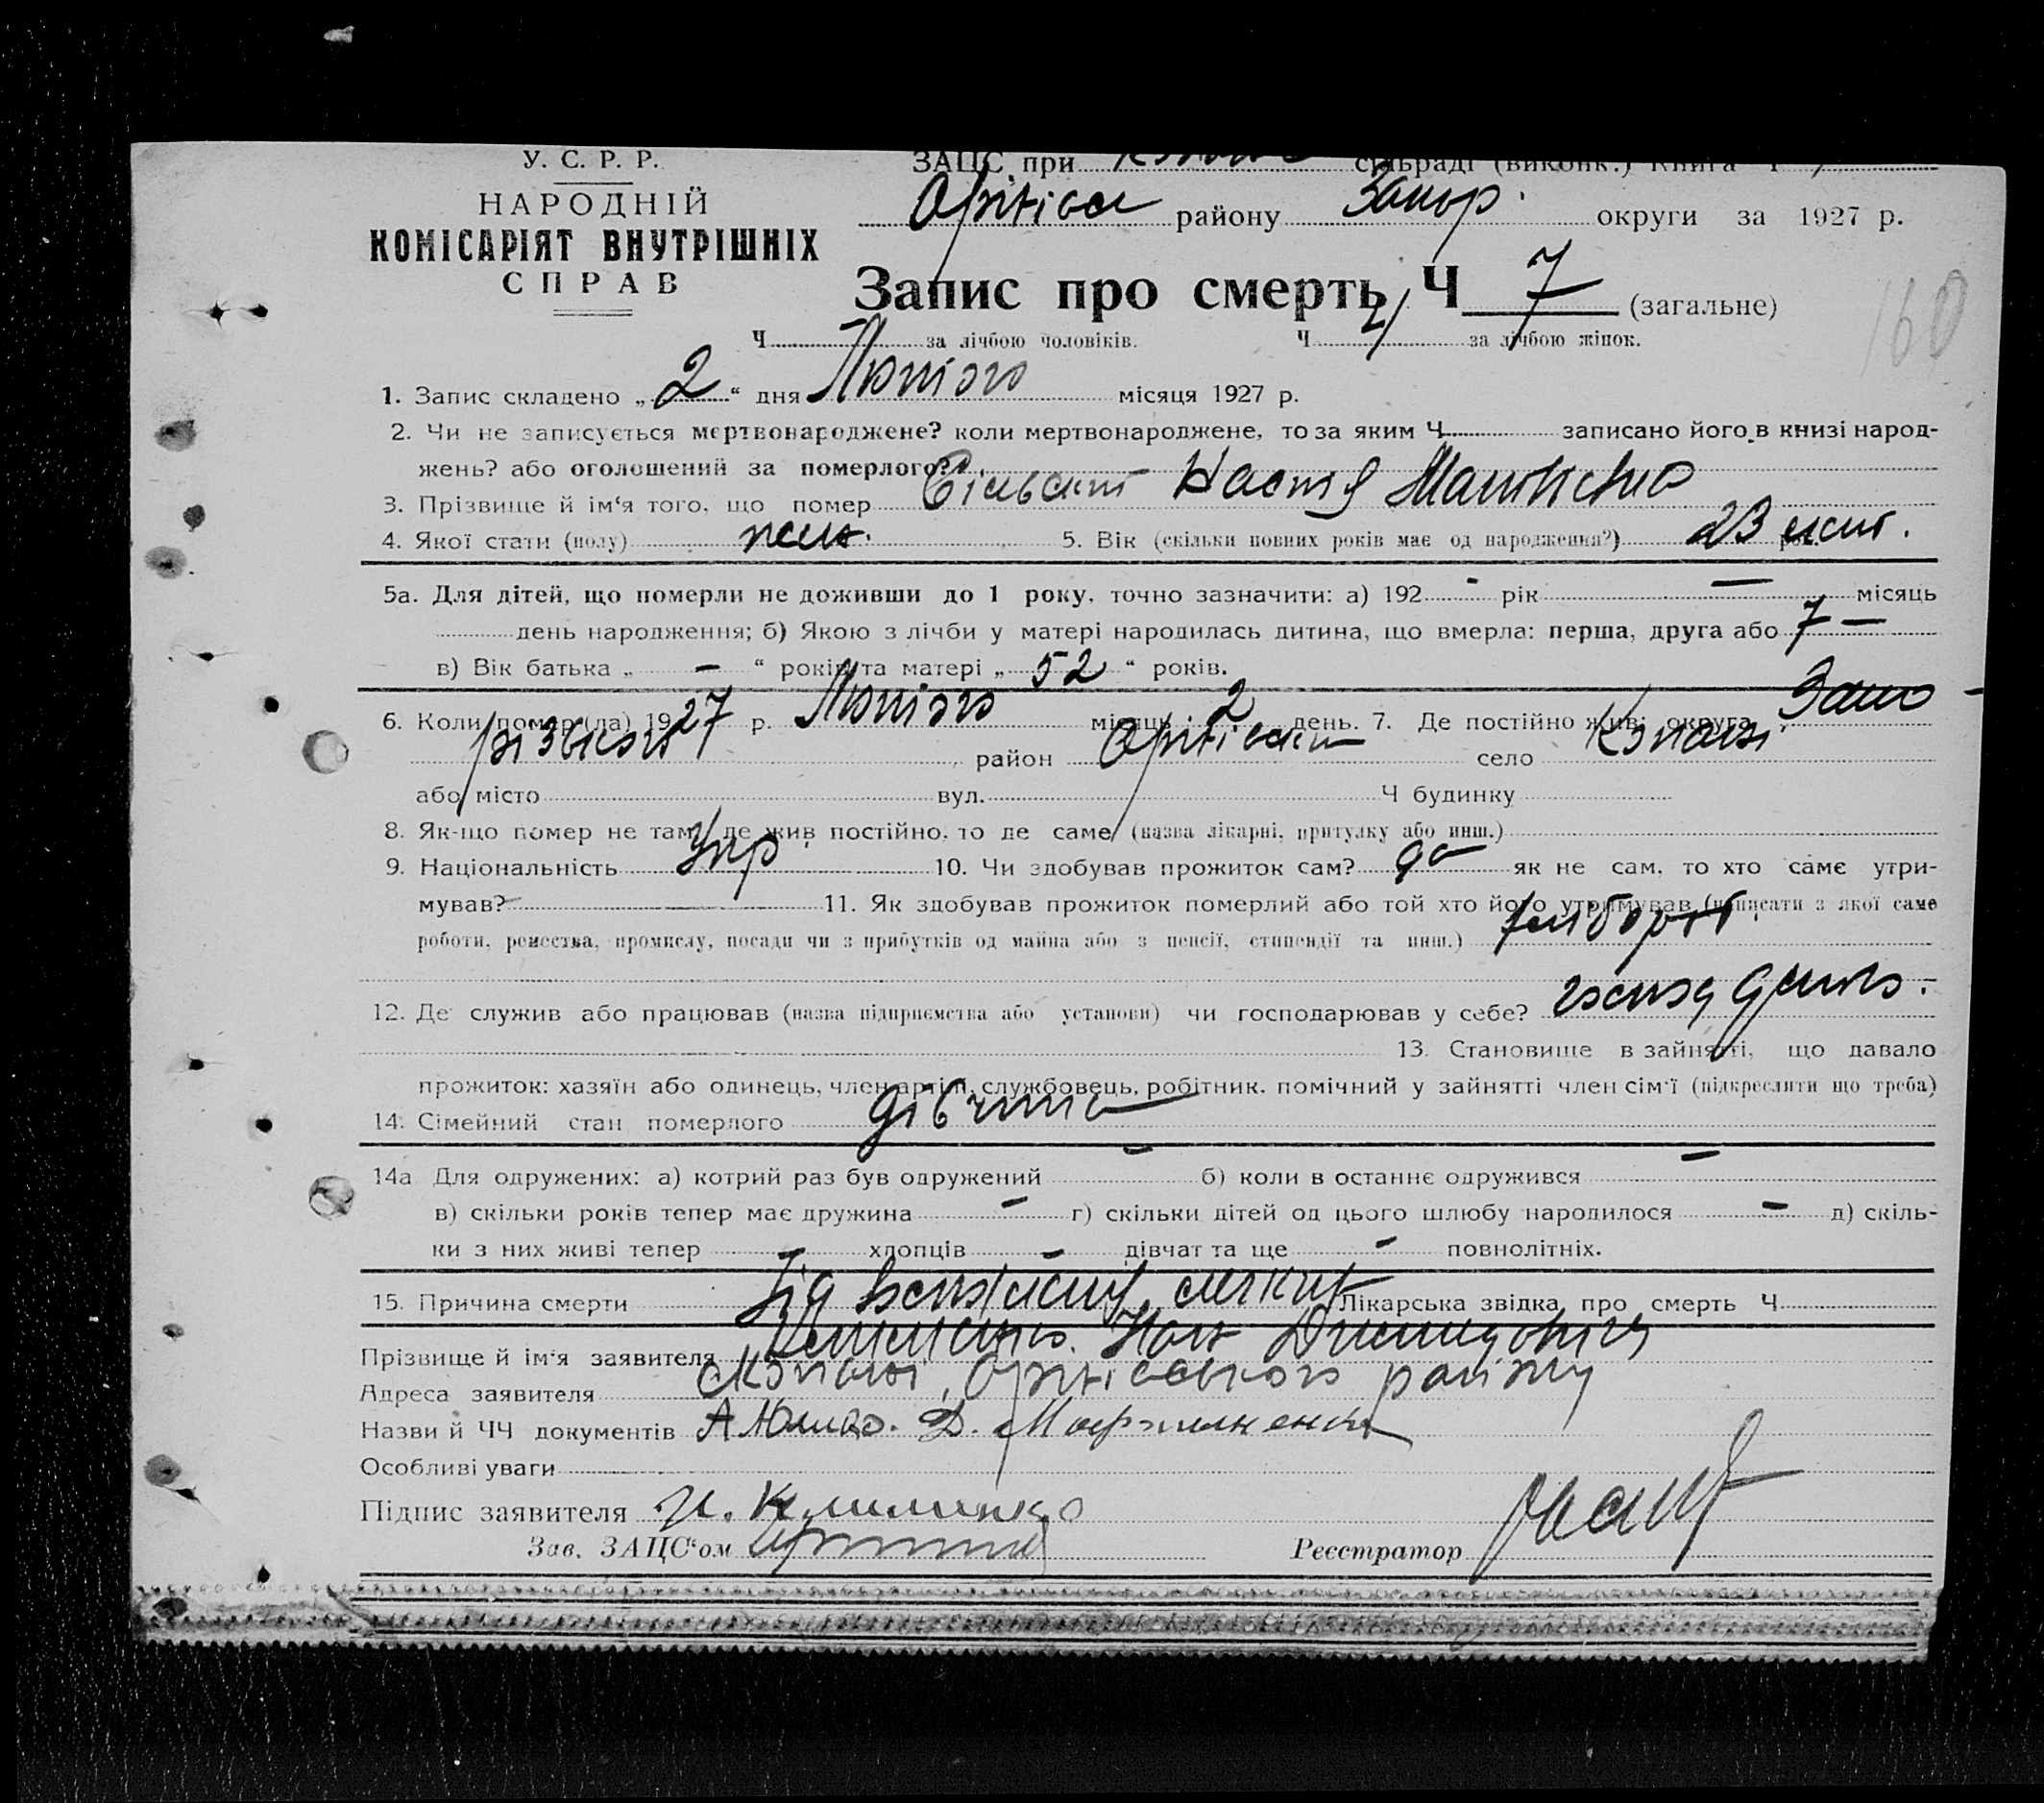 У. С. Р. Р.
НАРОДНІЙ
КОМІСАРІЯТ ВНУТРІШНІХ
СПРАВ
ЗАЦС при сільраді (виконк.) Книга Ч
району Запор. округи за 1927 р.
Запис про смерть Ч 7 (загальне)
Ч за лічбою чоловіків. Ч за лічбою жінок.
160
1. Запис складено „ 2 “ дня Лютого місяця 1927 р.
2. Чи не записується мертвонароджене? коли мертвонароджене, то за яким Ч записано його в книзі народ-
жень? або оголошений за померлого?
3. Прізвище й ім‘я того, що помер Настя
4. Якої стати (полу) жен. 5. Вік (скільки повних років має од народження?) 23
5а. Для дітей, що померли не доживши до 1 року, точно зазначити: а) 192 - рік — місяць
день народження; б) Якою з лічби у матері народилась дитина, що вмерла: перша, друга або 7 —
в) Вік батька „ - “ років та матері „ 52 “ років.
6. Коли помер(ла) 1927 р. Лютого місяць 2 день. 7. Де постійно жив: округа Запо-
різької район село Копані
або місто вул. Ч будинку
8. Як-що помер не там, де жив постійно, то де саме (назва лікарні, притулку або инш.)
9. Національність Укр. 10. Чи здобував прожиток сам? да як не сам, то хто саме утри-
мував? 11. Як здобував прожиток померлий або той хто його утримував (написати з якої саме
роботи, ремества, промислу, посади чи з прибутків од майна або з пенсії, стипендії та инш.) хлібороб.
12. Де служив або працював (назва підприємства або установи) чи господарював у себе?
13. Становище в зайнятті, що давало
прожиток: хазяїн або одинець, член артілі, службовець, робітник, помічний у зайнятті член сім‘ї (підкреслити що треба)
14. Сімейний стан померлого дівчина
14а Для одружених: а) котрий раз був одружений - б) коли в останнє одружився -
в) скільки років тепер має дружина - г) скільки дітей од цього шлюбу народилося - д) скіль-
ки з них живі тепер хлопців - дівчат та ще - повнолітніх.
15. Причина смерти Від Лікарська звідка про смерть Ч
Прізвище й ім‘я заявителя
Адреса заявителя с Копані, Оріхівського району
Назви й ЧЧ документів
Особливі уваги
Підпис заявителя
Зав. ЗАЦС‘ом Реєстратор